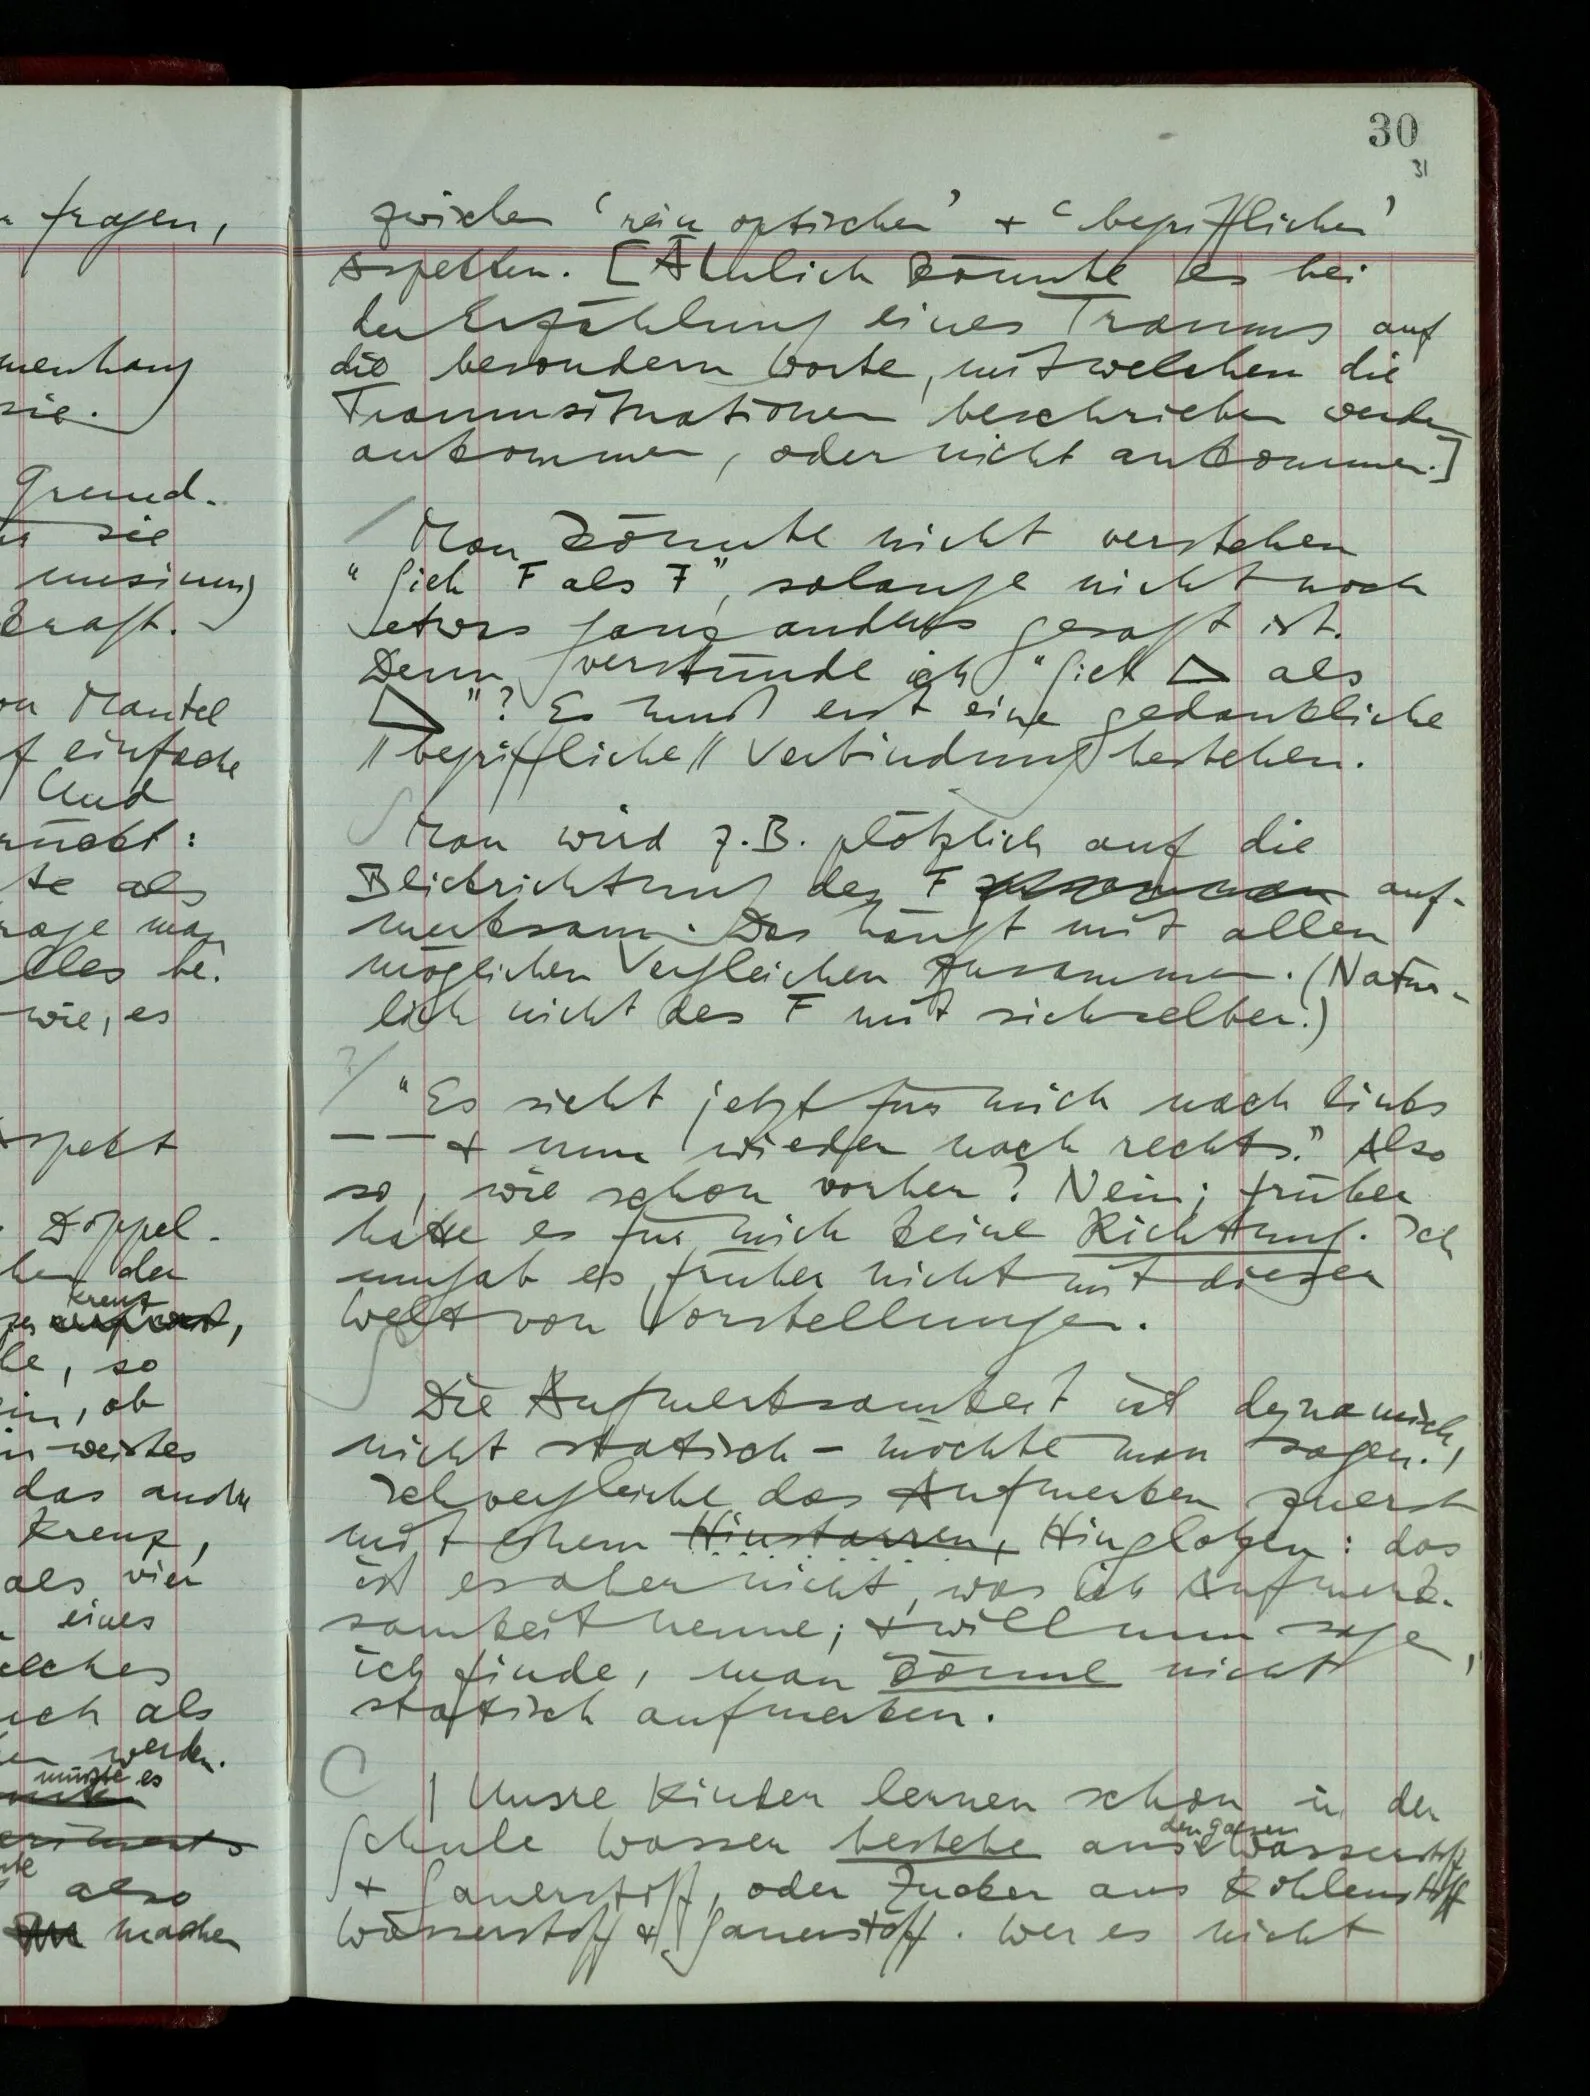 fragen,
menhang
sie.
Grund-
sie
musinung
Kraft.
Mantel
einfache
Und
rückt:
te als
rage man
lles be-
wie, es
spekt
Doppel-
der
Kreuz
le, so
ein, ob
weißes
das andre
Kreuz,
als vier
eines
elches
uch als
werden.
müßte es
also
machen
30
31
zwischen ‘rein optischen’ + ‘begrifflichen’
Aspekten. [Ähnlich könnte es bei
der Erzählung eines Traums auf
die besondern Worte, mit welchen die
Traumsituationen beschrieben werden
ankommen, oder nicht ankommen.]
Man könnte nicht verstehen
“Sieh F als F”, solange nicht noch
etwas ganz andres gesagt ist.
Denn, verstünde ich “Sieh △ als
△”? Es muß erst eine gedankliche
//begriffliche// Verbindung bestehen.
Man wird z.B. plötzlich auf die
Blickrichtung des F auf-
merksam. Das hängt mit allen
möglichen Vergleichen zusammen. (Natür-
lich nicht des F mit sich selber.)
“Es sieht jetzt für mich nach links
— — + nun wieder nach rechts.” Also
so, wie schon vorher? Nein; früher
hatte es für mich keine Richtung. Ich
umgab es früher nicht mit dieser
Welt von Vorstellungen.
Die Aufmerksamkeit ist dynamisch,
nicht statisch – möchte man sagen.
Ich vergleiche das Aufmerken zuerst
mit einem Hinstarren, Hinglotzen: das
ist es aber nicht, was ich Aufmerk-
samkeit nenne; + will nun sagen,
ich finde, man könne nicht
statisch aufmerken.
| Unsre Kinder lernen schon in der
den Gasen
Schule Wasser bestehe aus Wasserstoff
+ Sauerstoff, oder Zucker aus Kohlenstoff
Wasserstoff + Sauerstoff. Wer es nicht